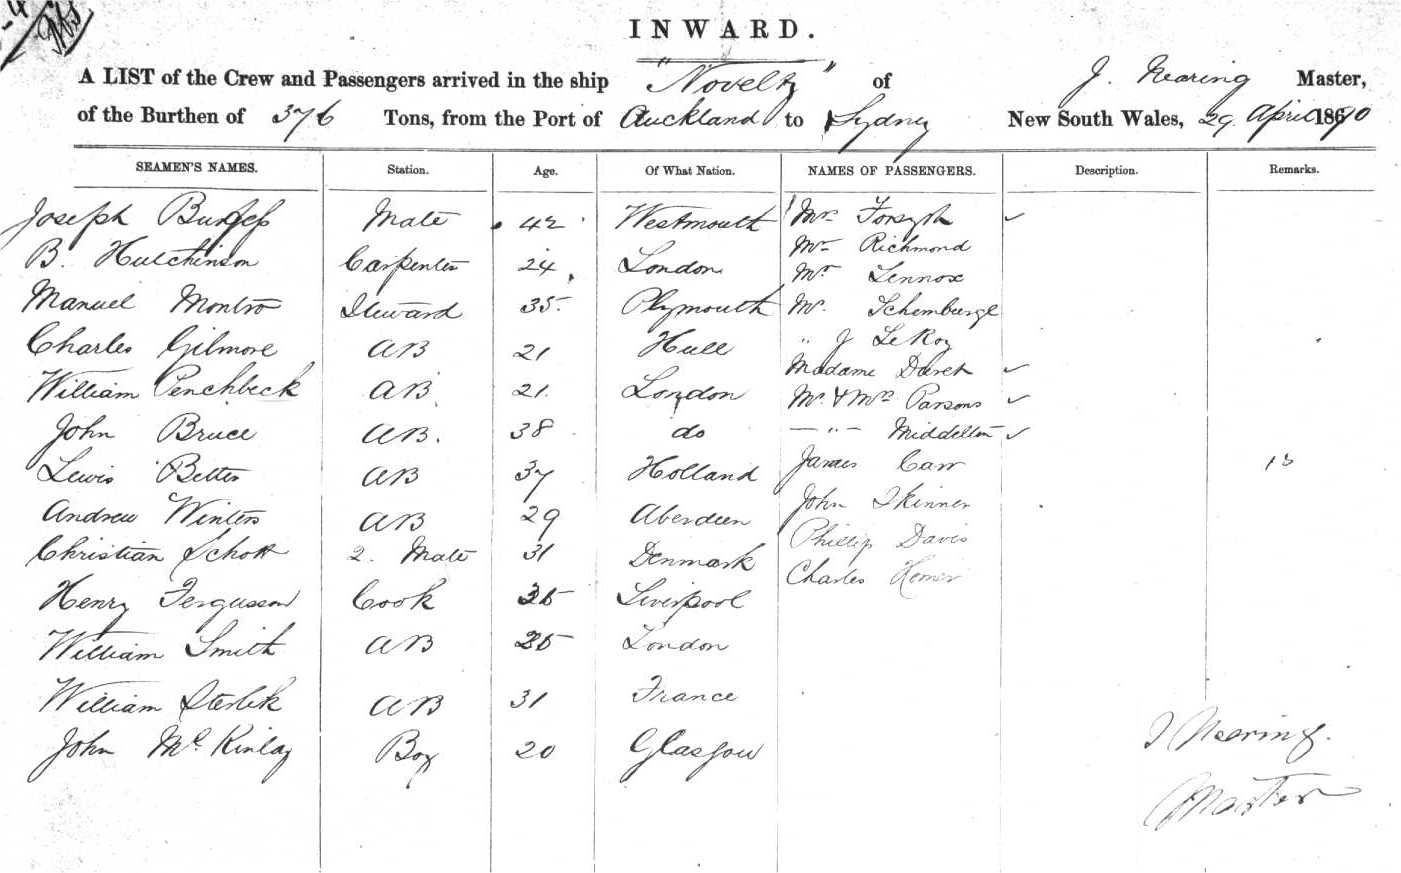 INWARD.
A LIST of the Crew and Passengers arrived in the ship "Novelty" of J. Nearing Master,
of the Burthen of 376 Tons, from the Port of Auckland to Sydney New South Wales, 29 April 1870
SEAMEN'S NAMES. Station. Age. Of What Nation. NAMES OF PASSENGERS. Description. Remarks.
Joseph Burgess Mate 42 Westmouth Mr Forsyth ✓
Mr Richmond
B. Hutchinson Carpenter 24 London Mr Lennox
Manuel Montro Steward 35 Plymouth Mr. Schemburgl
Charles Gilmore AB 21 Hull " J LeRoy
Madame Duret ✓
William Penchbeck AB 21 London Mr & Mrs Parsons ✓
John Bruce AB. 38 do — " — Middelton ✓
Lewis Better AB 37 Holland James Carr 13
Andrew Winters AB 29 Aberdeen John Skinner
Christian Schott 2. Mate 31 Denmark Phillip Davis
Charles Homer
Henry Fergusson Cook Liverpool
William Smith AB London
William Sterlik AB 31 France
John McKinlay Boy 20 Glasgow
J Nearing.
Master